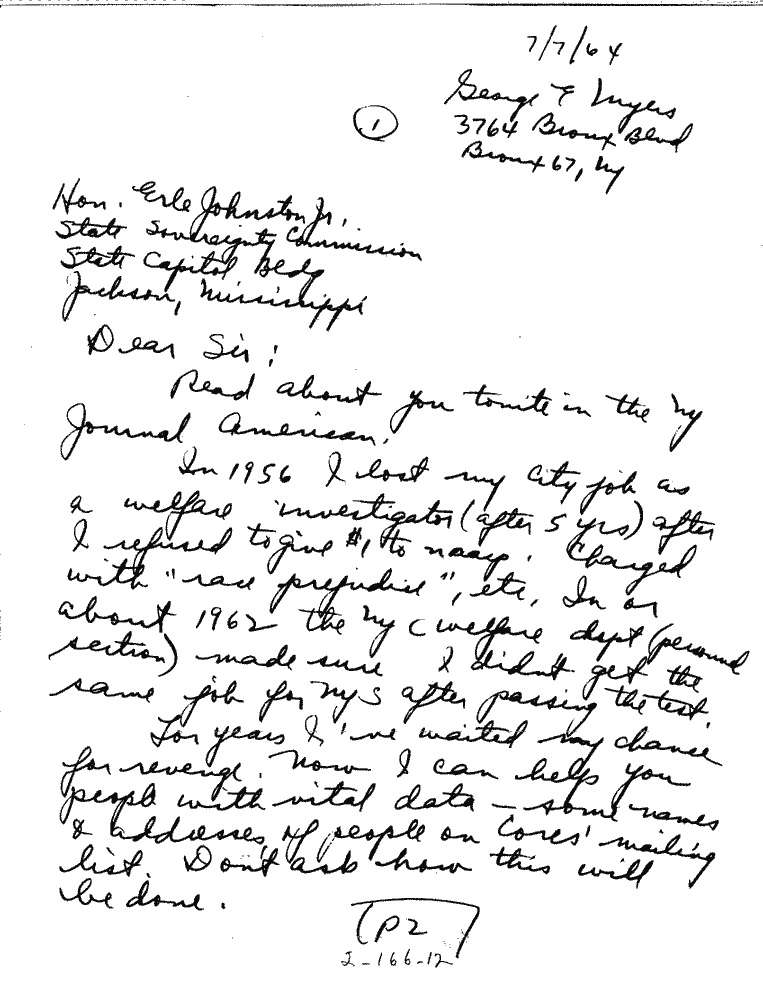 7/7/64
George E Myers
①
3764 Bronx Blvd
Bronx 67, Ny
Hon. Erle Johnston Jr.
State Sovereignty Commission
State Capitol Bldg
Jackson, Mississippi
Dear Sir:
Read about you tonite in the Ny
Journal American.
In 1956 I lost my city job as
a welfare investigator (after 5 yrs) after
I refused to give $1 to naacp. Charged
with "race prejudice", etc. In or
about 1962 the Ny C welfare dept (personnel
section) made sure I didn't get the
same job for NyS after passing the test.
For years I've waited my chance
for revenge. Now I can help you
people with vital data – some names
& addresses of people on Cores' mailing
list. Don't ask how this will
be done.
P2
2-166-12